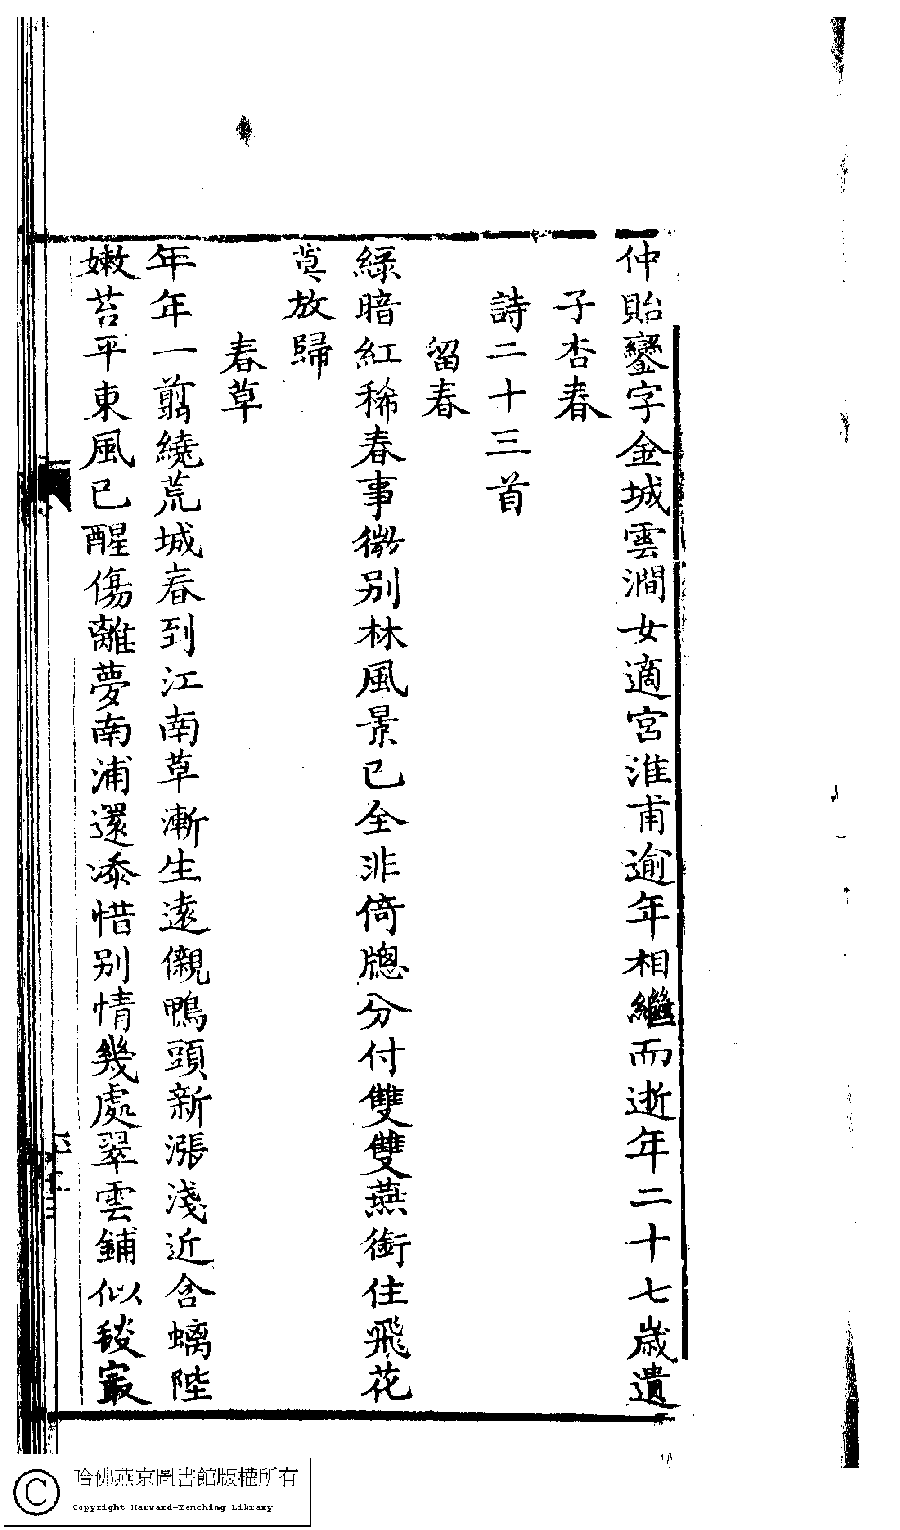 仲貽鑾字金城雲澗女適宮淮甫逾年相繼而逝年二十七歲遺
子杏春
詩二十三首
留春
綠暗紅稀春事微別林風景已全非倚牕分付雙雙燕銜住飛花
莫放歸
春草
年年一剪繞荒城春到江南草漸生遠儭鴨頭新漲淺近含螭陛
嫩苔平東風已醒傷離夢南浦還添惜別情幾處翠雲鋪似毯㝡
哈佛燕京圖書館版權所有
Copyright Harvard-Yenching Library